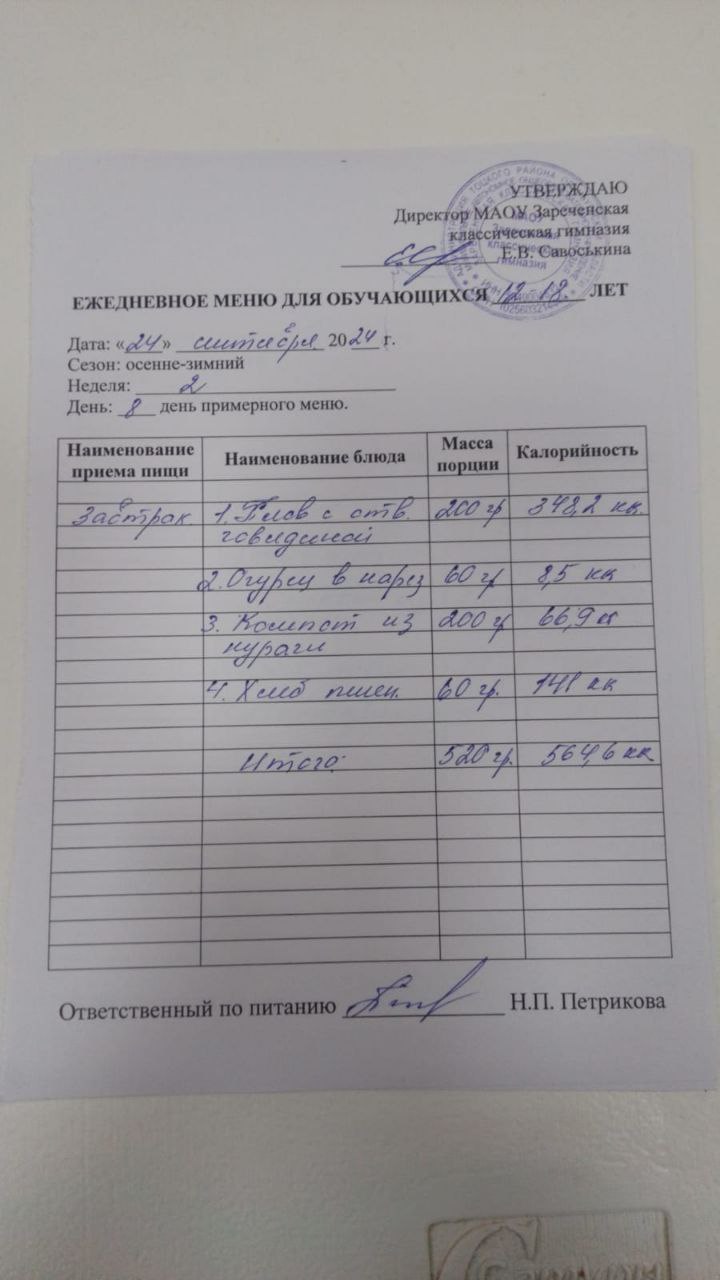 УТВЕРЖДАЮ
Директор МАОУ Зареченская
классическая гимназия
Е.В. Савоськина
ЕЖЕДНЕВНОЕ МЕНЮ ДЛЯ ОБУЧАЮЩИХСЯ 12-18 ЛЕТ
Дата: «24» сентября 2024 г.
Сезон: осенне-зимний
Неделя: 2
День: 8 день примерного меню.
Наименование приема пищи Наименование блюда Масса порции Калорийность
Завтрак 1. Плов с отв. 200 гр 348,2 кк.
говядиной
2. Огурец в нарез 60 гр 8,5 кк
3. Компот из 200 гр 66,9 кк
кураги
4. Хлеб пшен. 60 гр. 141 кк
Итого: 520 гр. 564,6 кк
Ответственный по питанию Н.П. Петрикова